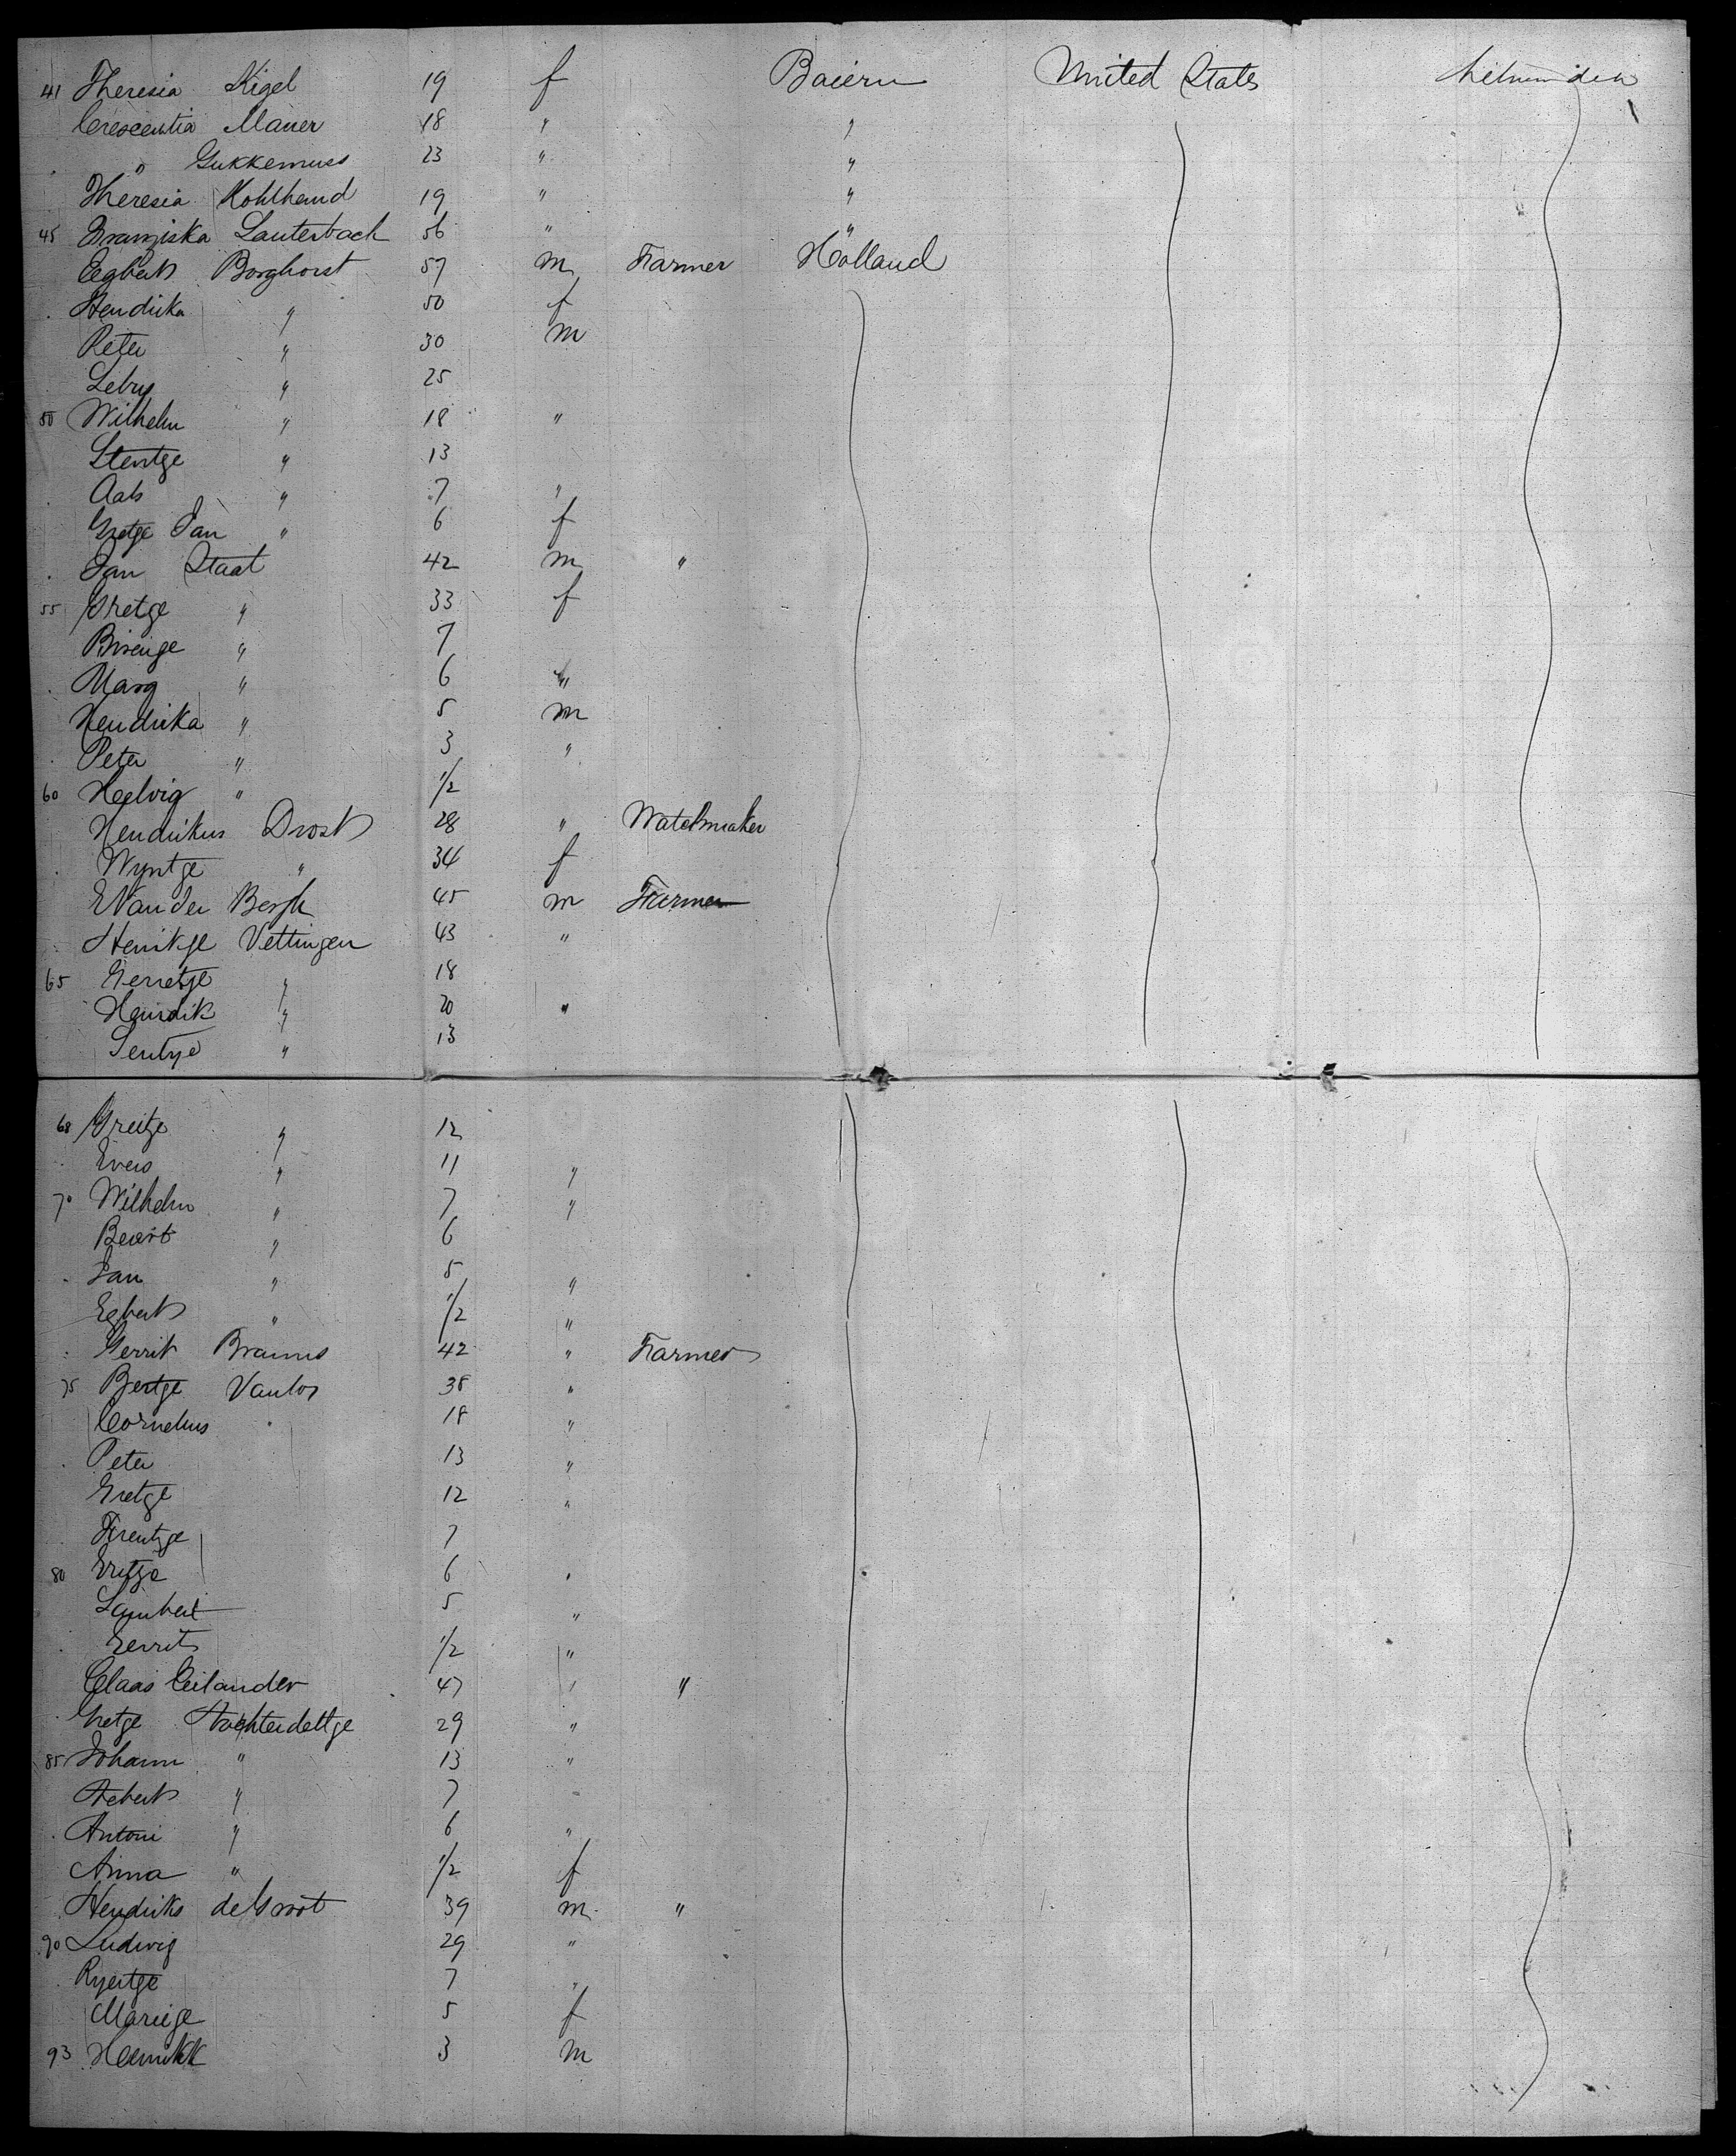 41 Theresia Kigel 19 f Baiern United States
Crescentia Maner 18 " "
" Gukkemuss 23 " "
Theresia Kohlhend 19 " "
45 Franziska Lauterbach 56 " "
Egbert Borghorst 57 m Farmer Holland
Hendrika " 50 f
Peter " 30 m
" 25
50 Wilhelm " 18 "
Stentge " 13
Aals " 7 "
Gretge Jan " 6 f
Jan Staat 42 m "
55 Gretge " 33 f
" 7
Marg " 6 "
Hendrika " 5 m
Peter " 3 "
60 Hedvig " 1/2
Hendrikus Drost 28 " Watchmaker
Wyntge " 34 f
E Van der Bergh 45 m Farmer
Henikje Vettingen 43 "
65 Gerretje " 18
Hendik " 20 "
Sentye " 13
68 Greitje " 12
Evers " 11 "
70 Wilhelm " 7 "
Beert " 6
Jan " 5 "
Egbert " 1/2 "
Gerrit Brauns 42 " Farmer
75 Bertge Vanlos 38 "
Cornelius 18 "
Peter 13 "
Gretge 12 "
Frentye 7
80 6 "
Lambert 5 "
Gerrit 1/2 "
Claas Eilander 47 " "
Gretge Stochterdeltge 29 "
85 Johann " 13 "
Aebert " 7 "
Antoni " 6 "
Anna " 1/2 f
Hendriks de Groot 39 m "
90 Ludwig 29 "
Ryertge 7 "
Mariege 5 f
93 Hennikk 3 m